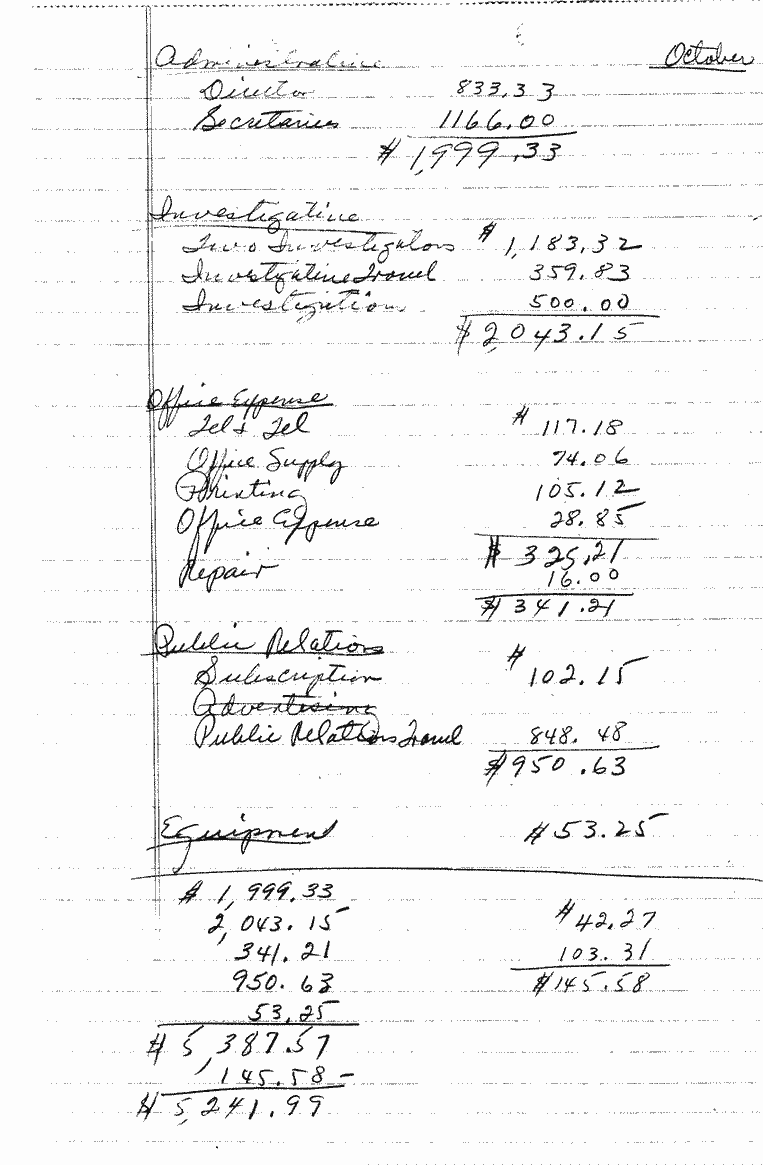 Administrative October
Director 833.33
Secretaries 1166.00
$ 1,999.33
Investigative
Two Investigators $ 1,183.32
Investigative Travel 359.83
Investigation 500.00
$ 2,043.15
Office Expense
Tel & Tel $ 117.18
Office Supply 74.06
Printing 105.12
Office Expense 28.85
$ 325.21
Repair 16.00
$ 341.21
Public Relations
Subscription $ 102.15
Advertising
Public Relations Travel 848.48
$ 950.63
Equipment $ 53.25
$ 1,999.33
2,043.15 $ 42.27
341.21 103.31
950.63 $ 145.58
53.25
$ 5,387.57
145.58 -
$ 5,241.99